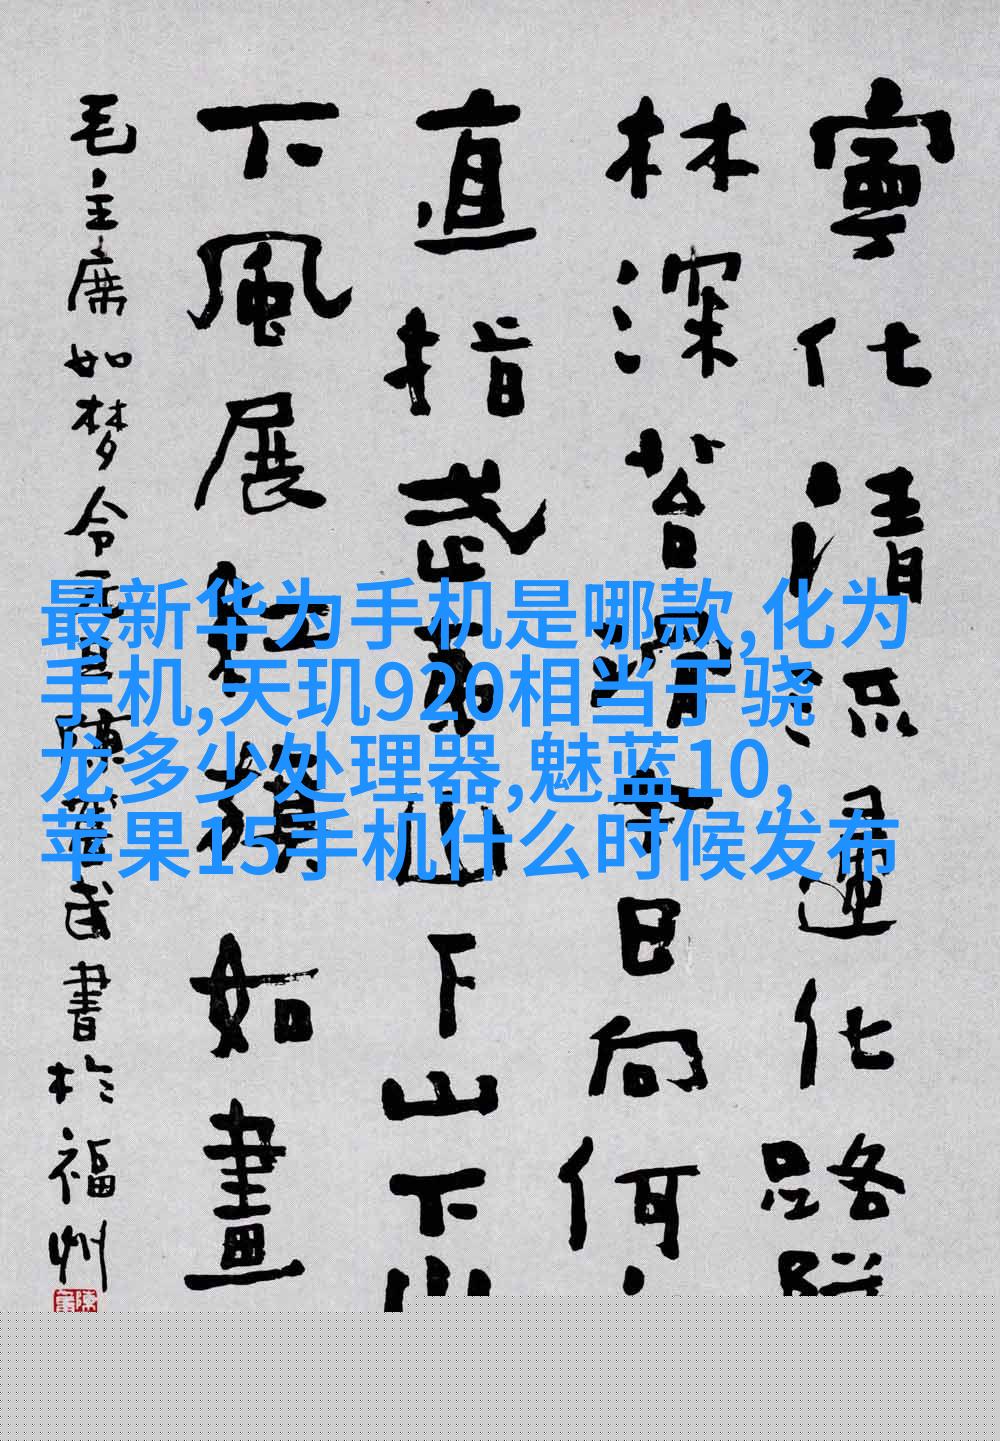 寧化清流歸化路
林深苔滑今日向何
直指武夷山下山下山
下風展紅旗如畫
毛主席如夢令元旦陳奮武書於福州
最新华为手机是哪款,化为
手机,天玑920相当于骁
龙多少处理器,魅蓝10,
苹果15手机什么时候发布